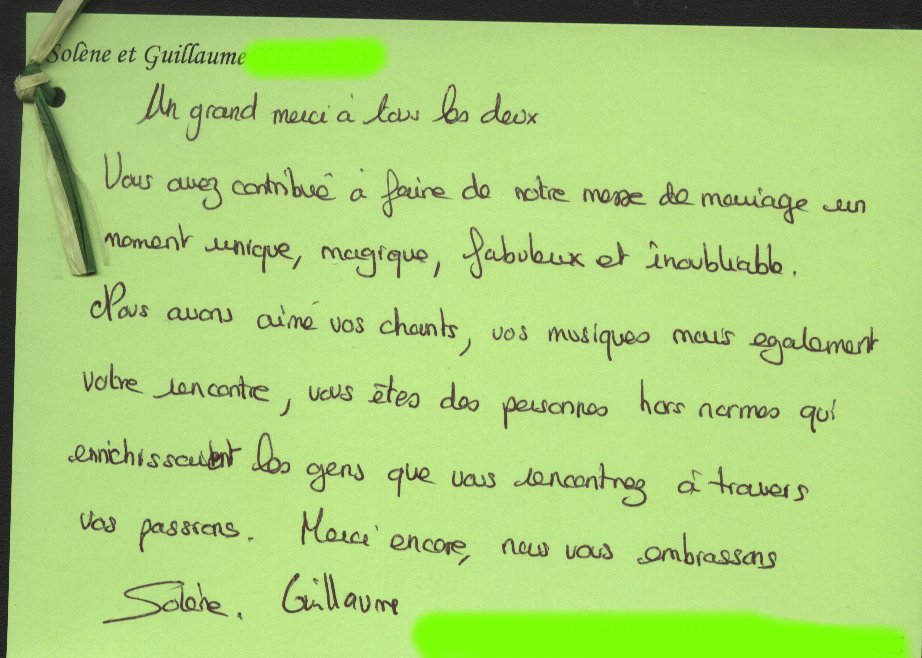 Solène et Guillaume
Un grand merci à tous les deux
Vous avez contribué à faire de notre messe de mariage un
moment unique, magique, fabuleux et inoubliable.
Nous avons aimé vos chants, vos musiques mais egalement
votre rencontre, vous êtes des personnes hors normes qui
enrichissent les gens que vous rencontrez à travers
vos passions. Merci encore, nous vous embrassons
Solène. Guillaume